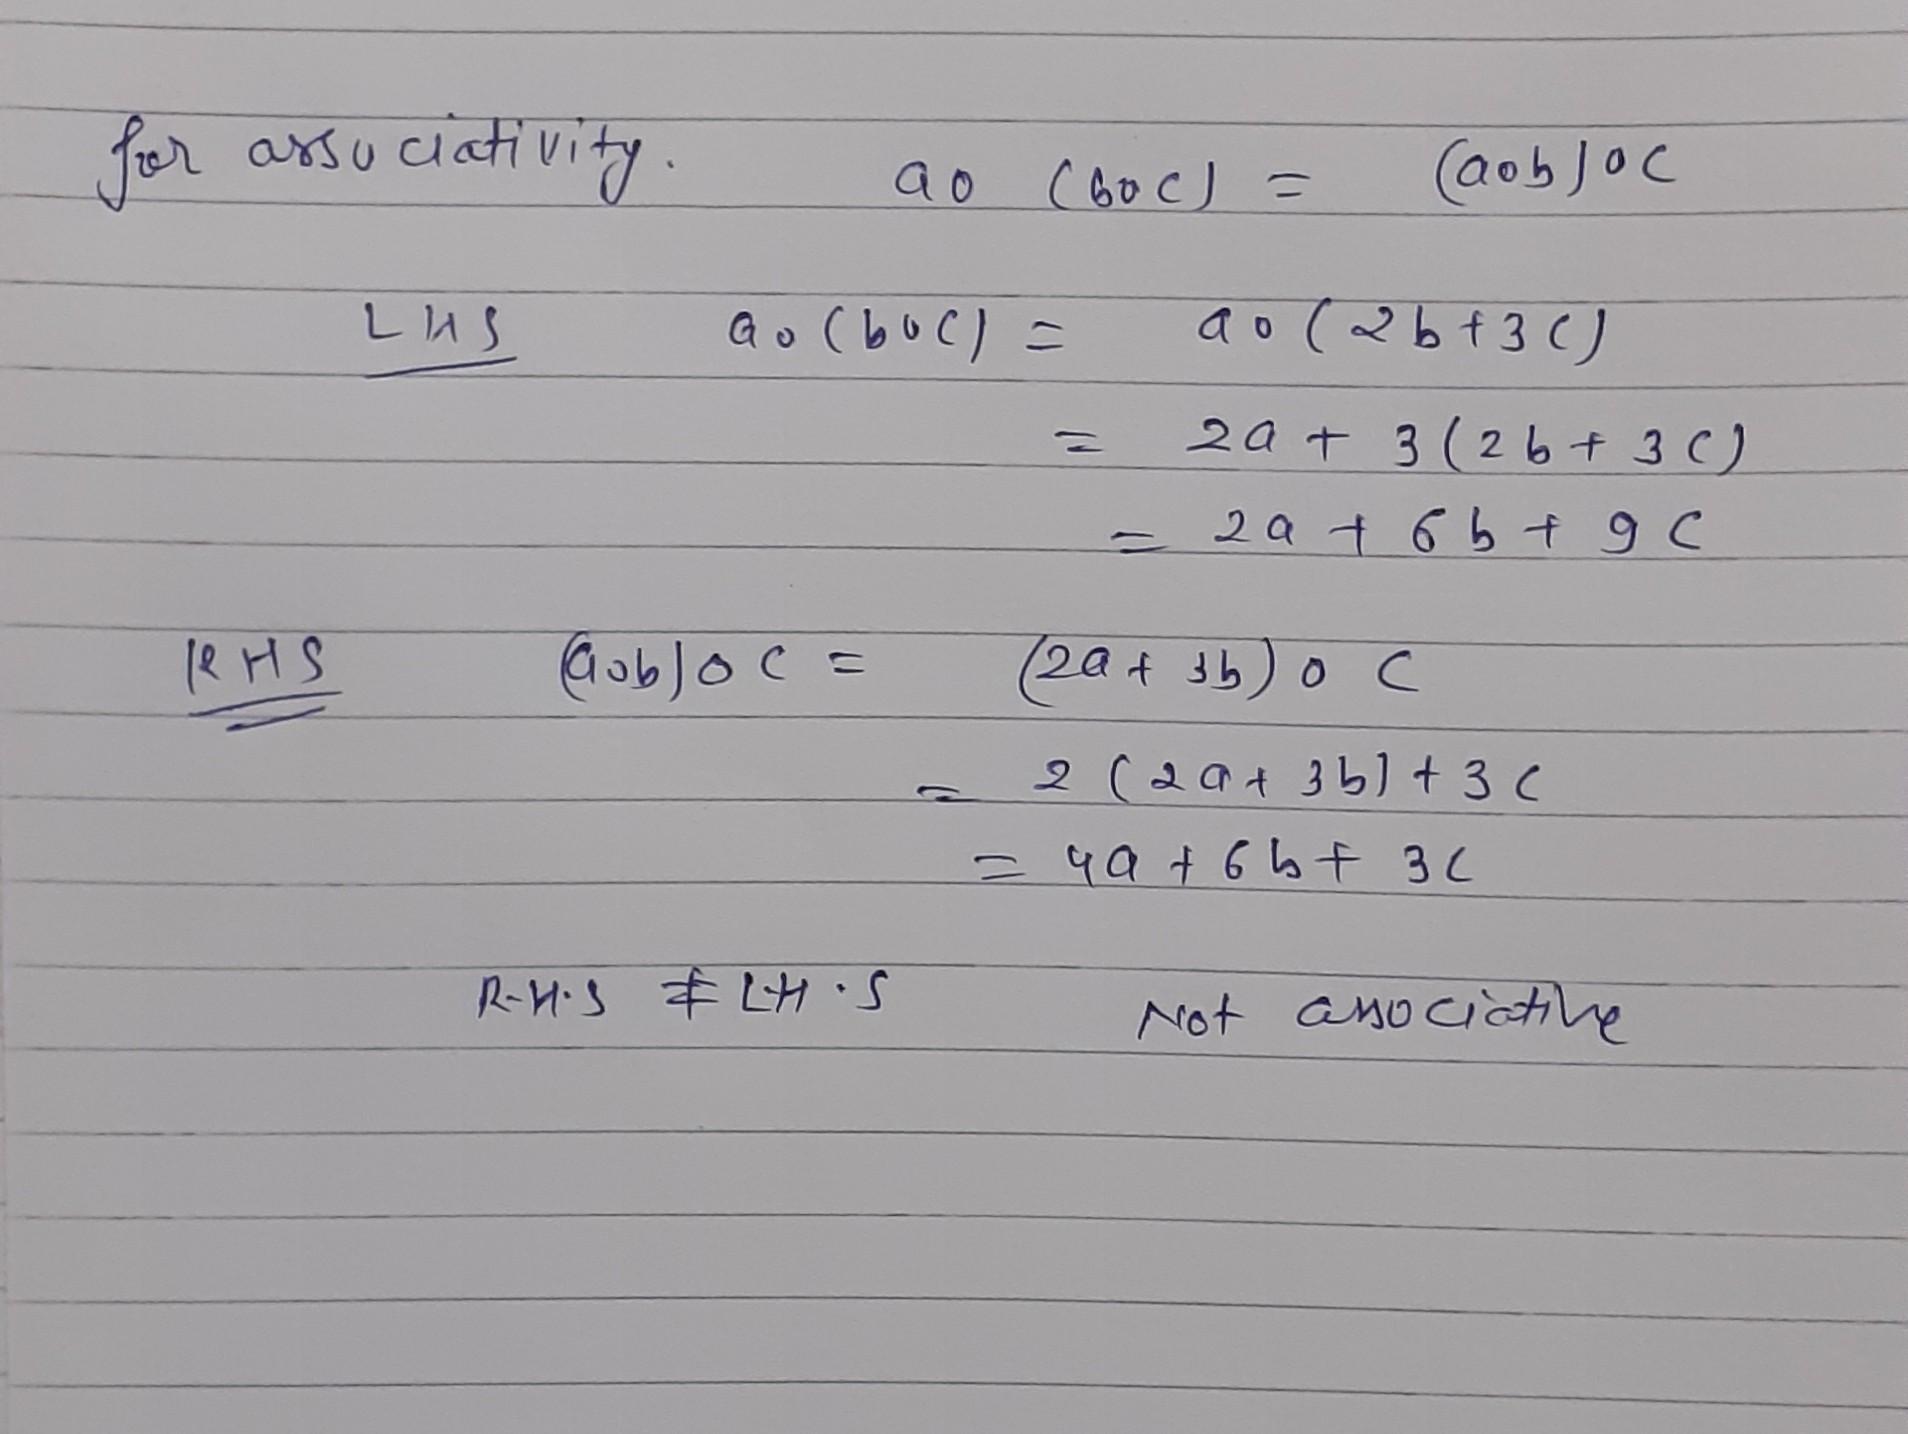 for associativity. a o (b o c) = (a o b) o c
LHS a o (b o c) = a o (2b + 3c)
= 2a + 3(2b + 3c)
= 2a + 6b + 9c
RHS (a o b) o c = (2a + 3b) o c
= 2(2a + 3b) + 3c
= 4a + 6b + 3c
R.H.S ≠ L.H.S Not associative